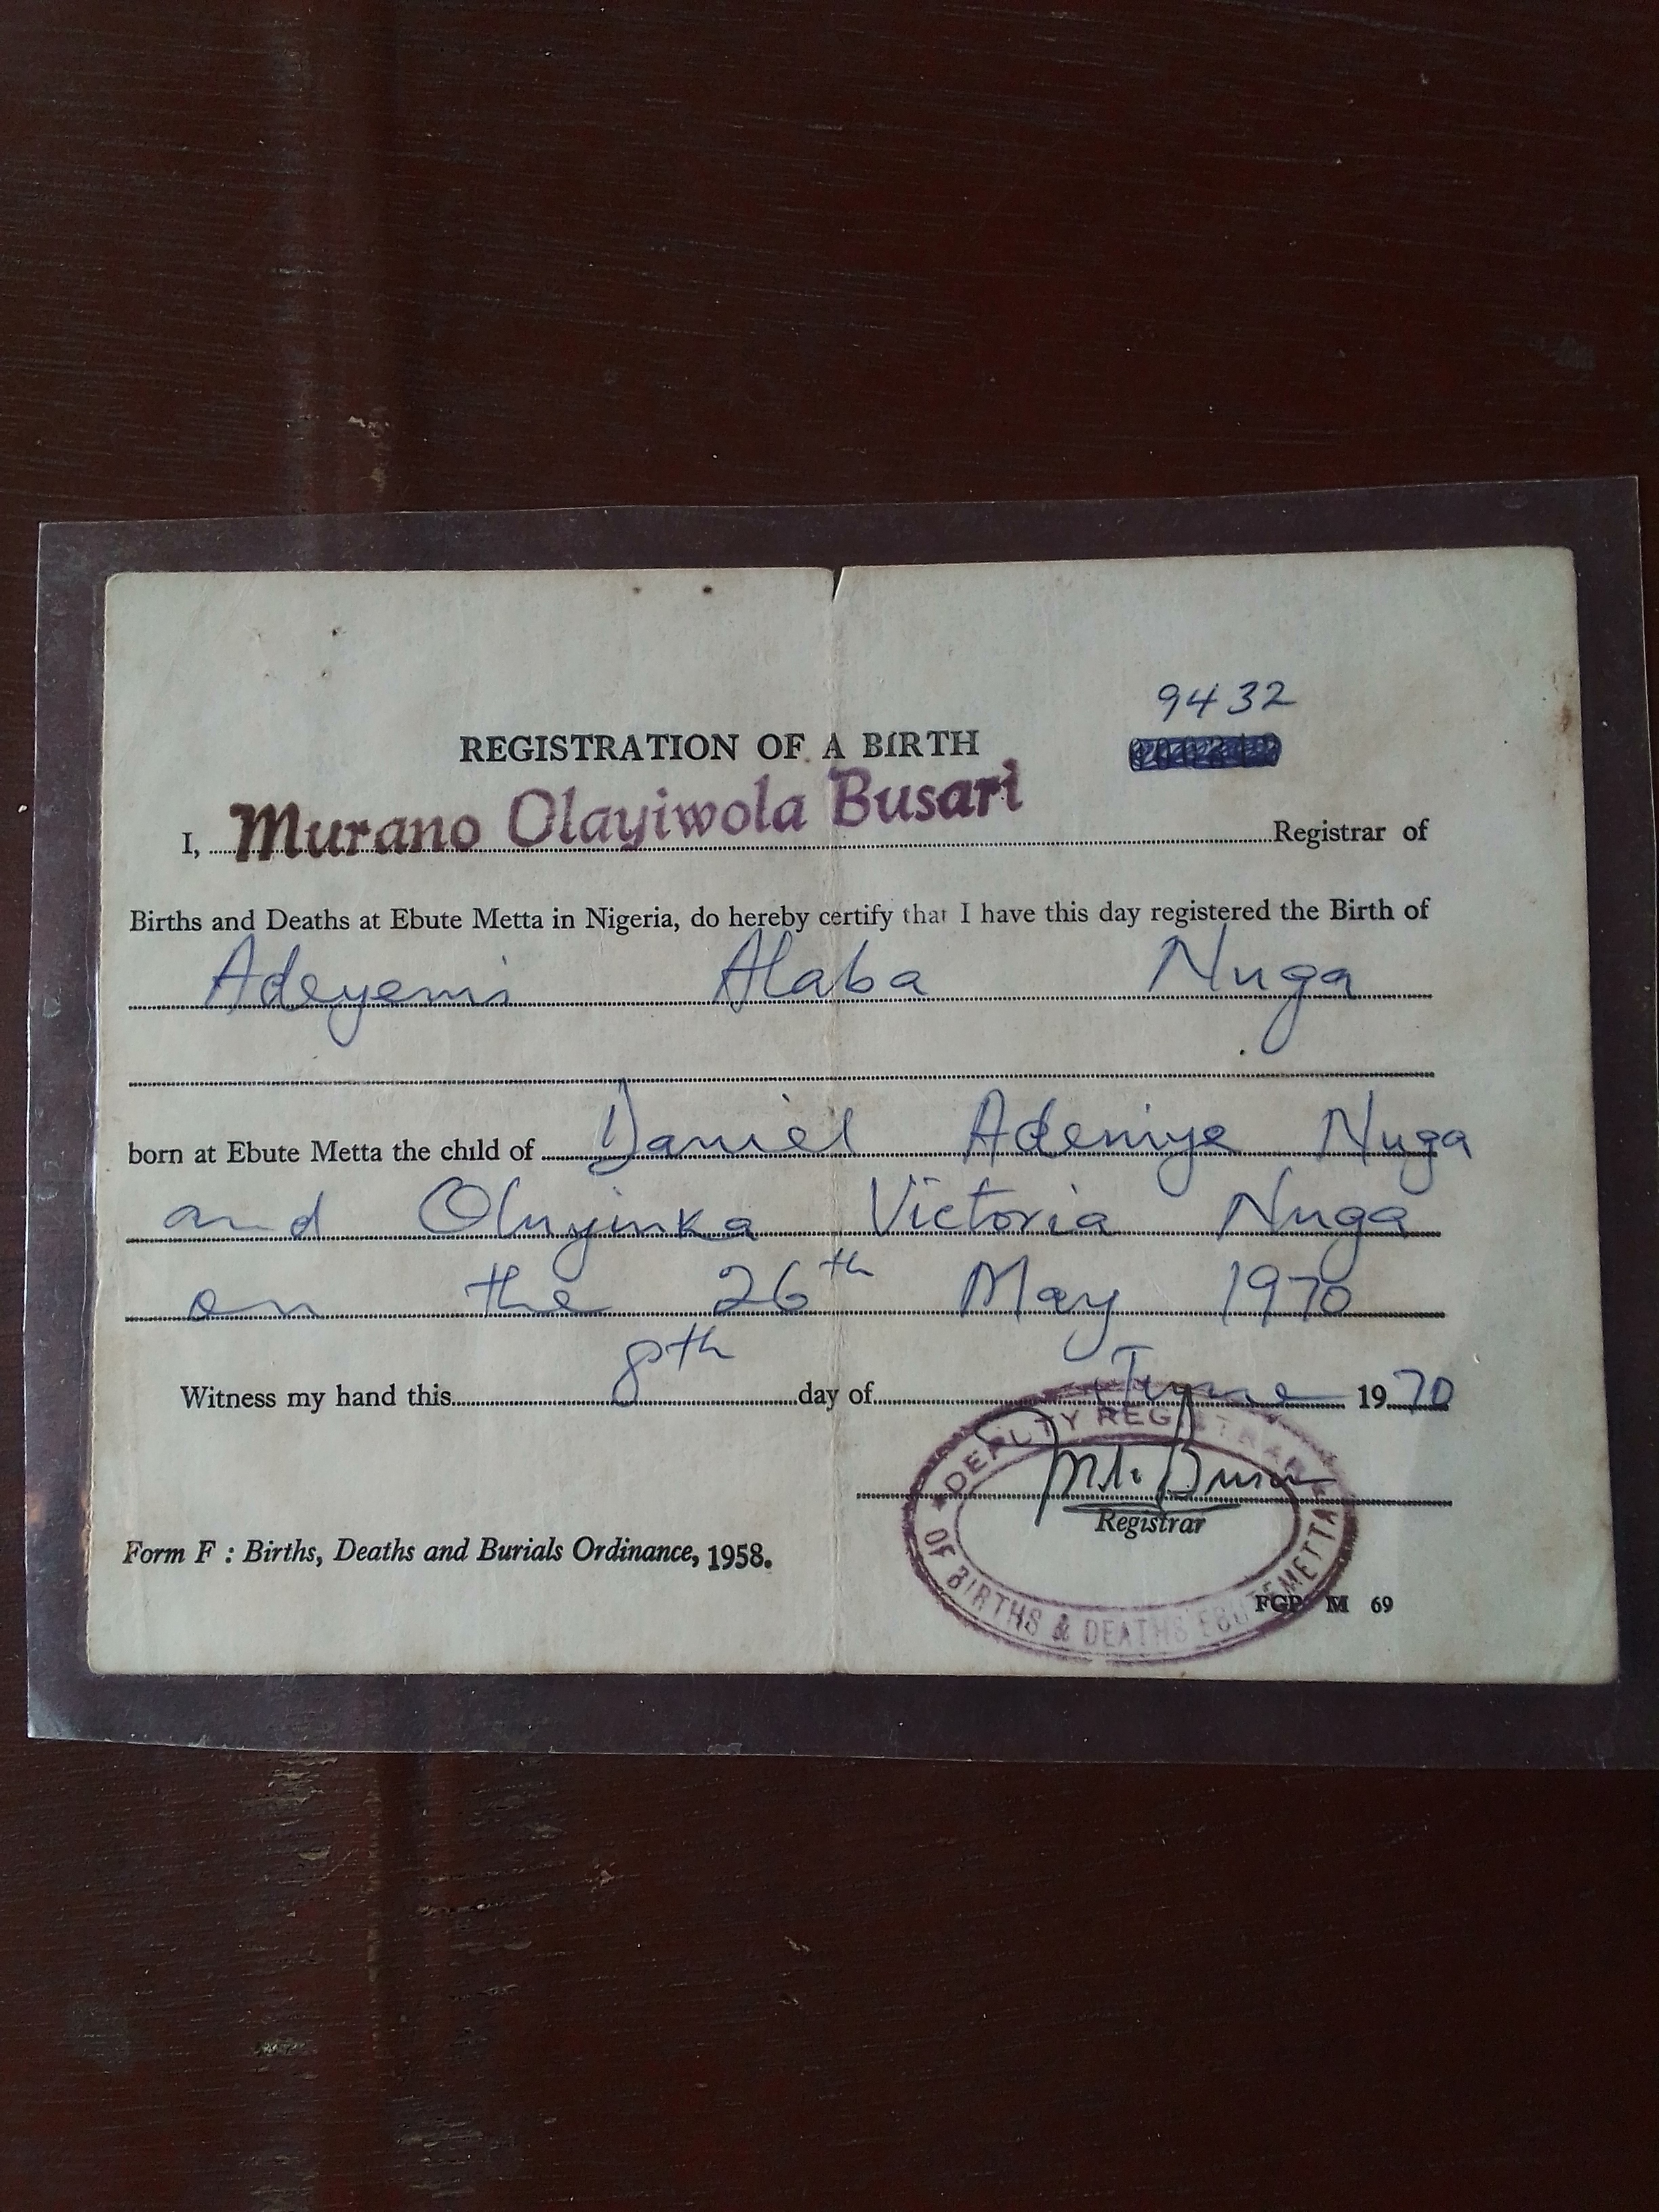 9432
REGISTRATION OF A BIRTH
I, Murano Olayiwola Busari Registrar of
Births and Deaths at Ebute Metta in Nigeria, do hereby certify that I have this day registered the Birth of
Adeyemi Alaba Nuga
born at Ebute Metta the child of Daniel Ademiye Nuga
and Oluyinka Victoria Nuga
on the 26th May 1970
Witness my hand this 8th day of June 1970
Registrar
Form F : Births, Deaths and Burials Ordinance, 1958.
FGP M 69
OF BIRTHS & DEATHS EBUTE METTA